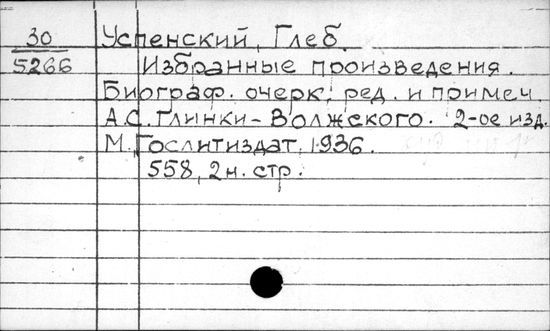 30 Успенский, Глеб.
5266 Избранные произведения.
Биограф. очерк, ред. и примеч.
А.С. Глинки-Волжского. 2-ое изд.
М. Гослитиздат, 1936.
558, 2 н. стр.